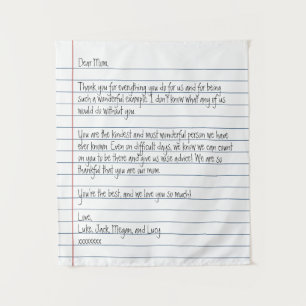 Dear Mum,
Thank you for everything you do for us and for being
such a wonderful example. I don't know what any of us
would do without you.
You are the kindest and most wonderful person we have
ever known. Even on difficult days, we know we can count
on you to be there and give us wise advice! We are so
thankful that you are our mom.
You're the best, and we love you so much:)
Love,
Luke, Jack, Megan, and Lucy
xxxxxxxx